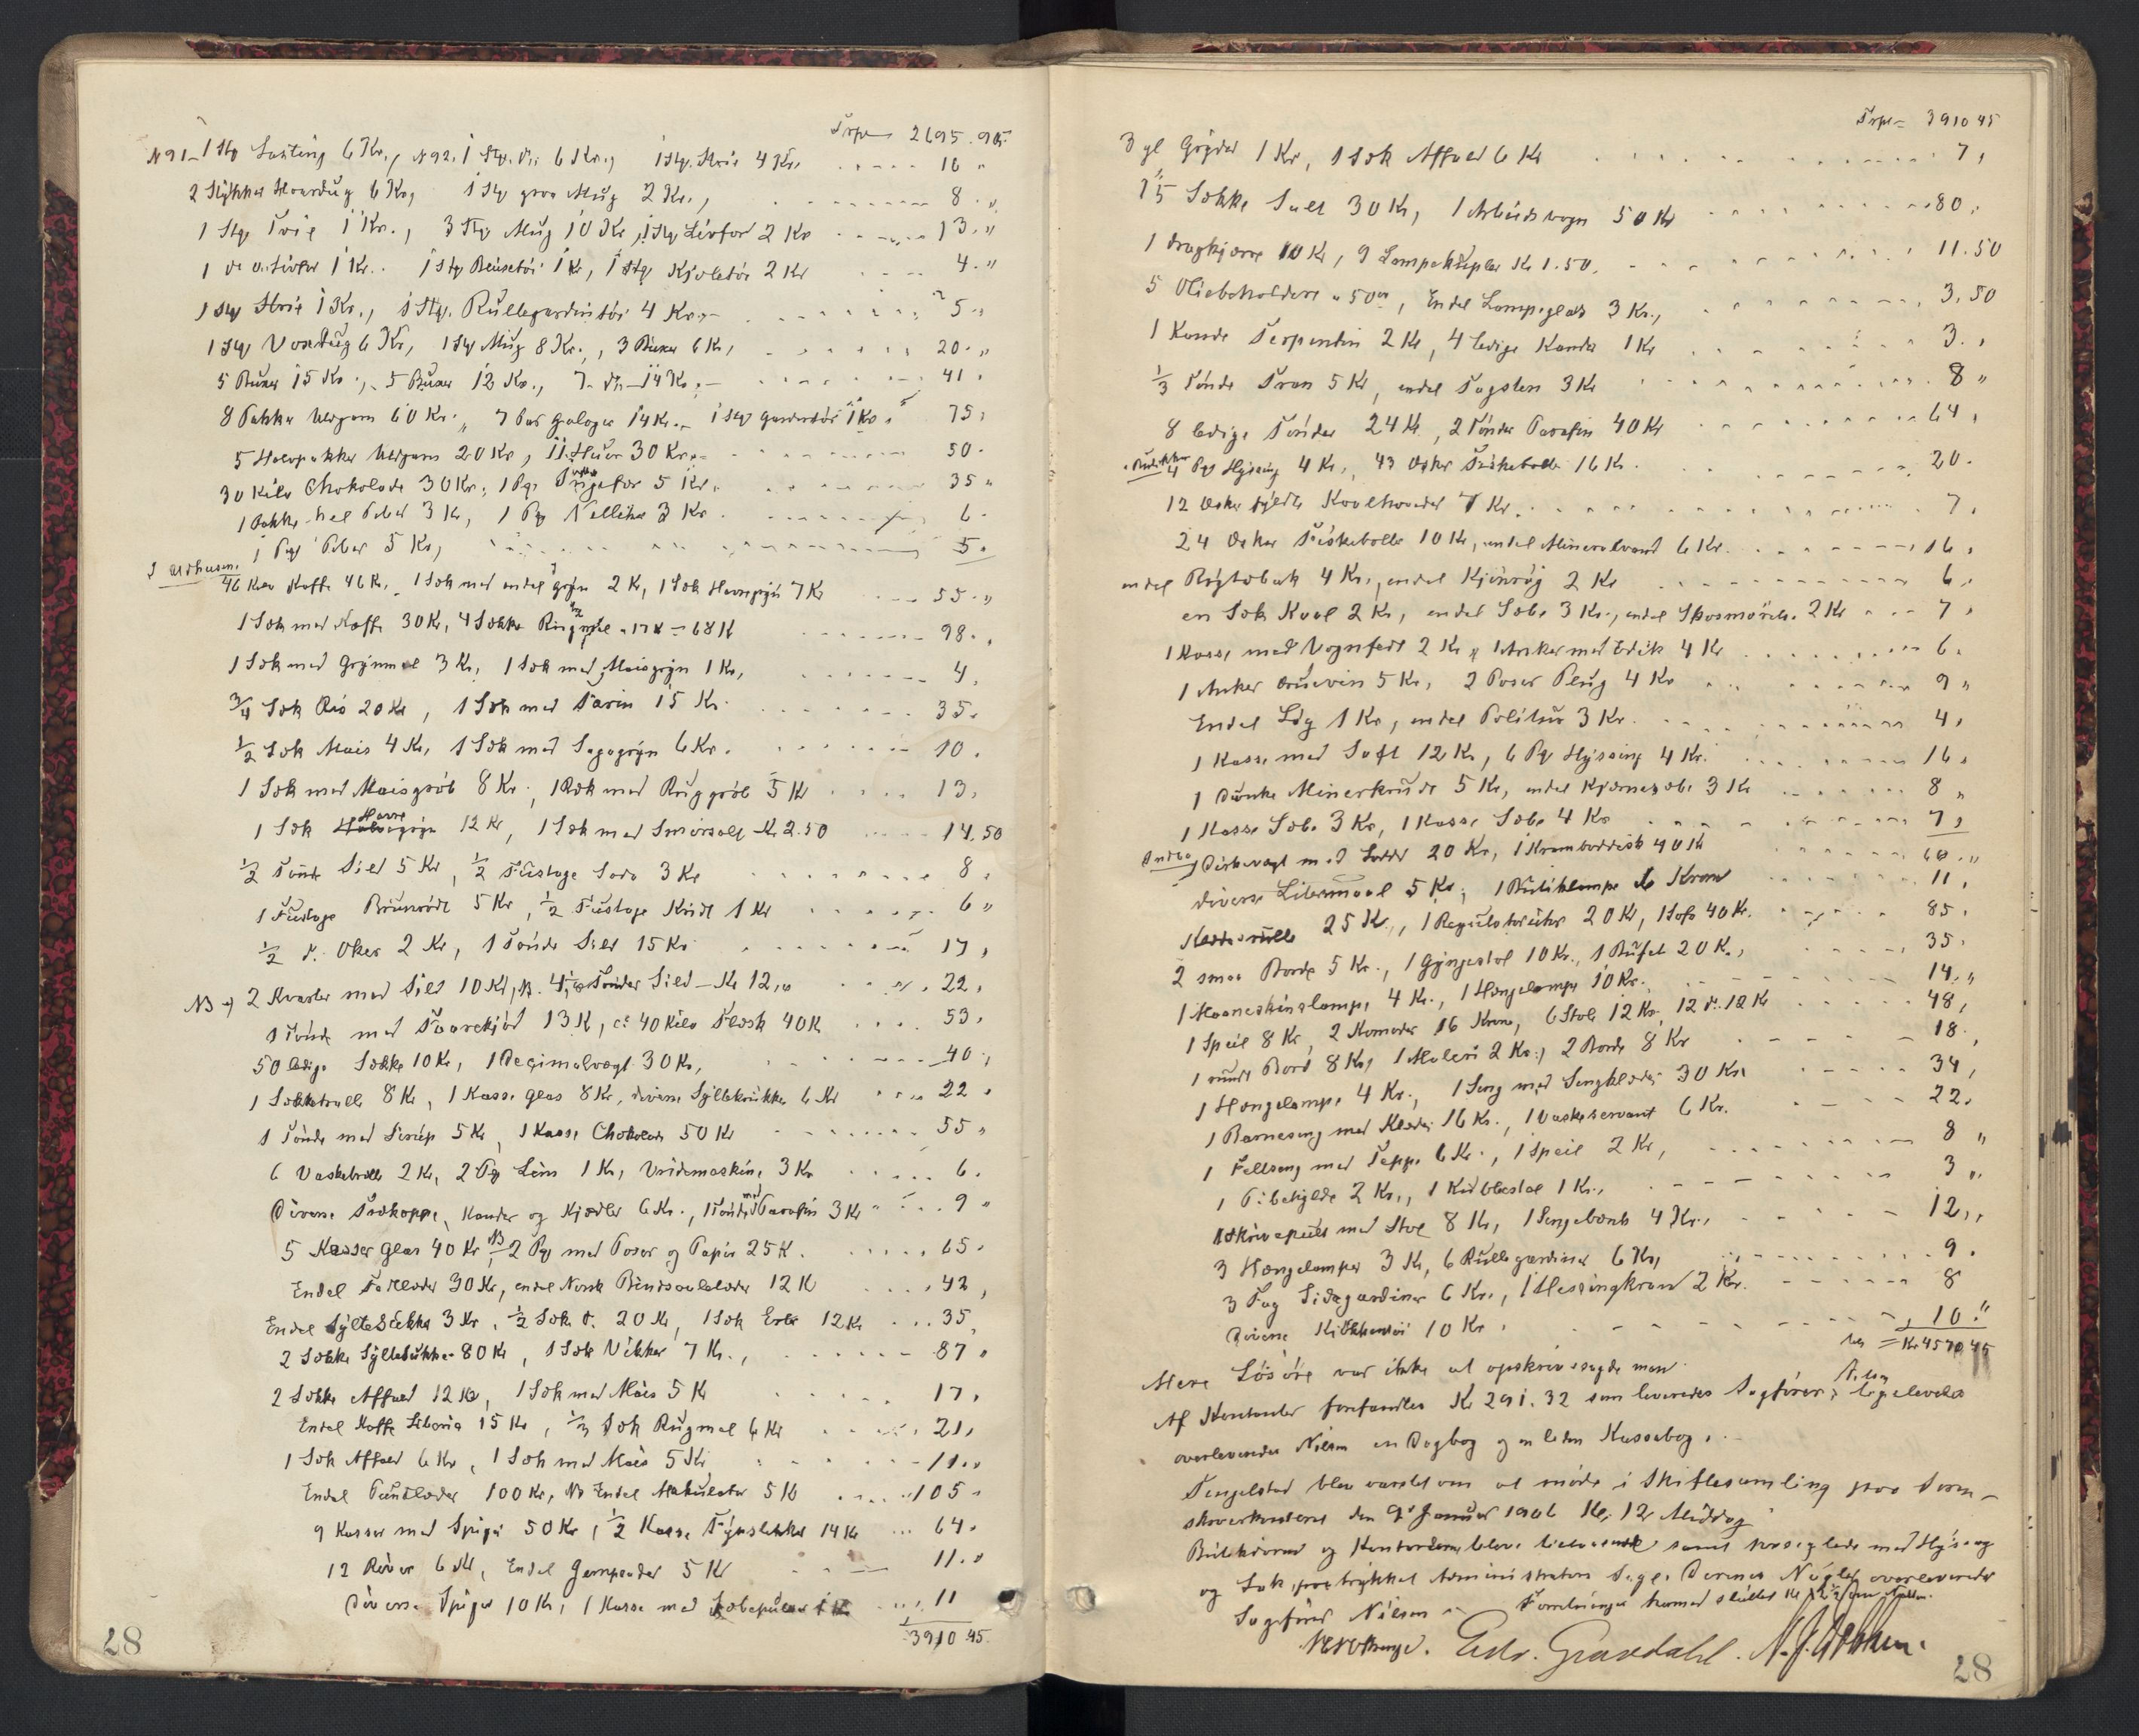 Trpt 2695.95
N 91 - 1 Stp Lasting 6 Kr., N 92. 1 Stp. do. 6 Kr., 1 Stp. Strie 4 Kr. 16 "
2 Stykker Haardug 6 Kr, 1 Stp graa Mug 2 Kr., 8. "
1 Stp. Tvil 1 Kr., 3 Stp Mug 10 Kr, 1 Stp Livfor 2 Kr 13. "
1 do do. Livfor 1 Kr.. 1 Stp Beusetöi 1 Kr, 1 Stp Kjoletöi 2 Kr 4. "
1 Stp Strie 1 Kr., 1 Stp. Rullegardintöi 4 Kr. 5 "
1 Stp Voxdug 6 Kr, 1 Stp Mug 8 Kr., 3 Buxer 6 Kr, 20. "
5 Buxer 15 Kr., 5 Buxer 12 Kr., 7 do 14 Kr. 41.
8 Pakker Uldgarn 60 Kr., 7 Par Galoger 14 Kr. 1 Stp Gardintöi 1 Kr. 75,
5 Halvpakker Uldgarn 20 Kr, 11 Huer 30 Kr. 50.
30 Kilo Chokolade 30 Kr., 1 Pk. Ingefær 5 Kr. 35 "
1 Pakke hel Peber 3 Kr, 1 Pk Nelliker 3 Kr. 6.
1 Pk Peber 5 Kr, 5.
I Udhuset.
46 Kilo Kaffe 46 Kr. 1 Sæk med endel Gryn 2 Kr, 1 Sæk Havregryn 7 Kr 55. "
1 Sæk med Kaffe 30 Kr, 4 Sække Rugmel a 17 Kr = 68 K 98.
1 Sæk med Grynmel 3 Kr, 1 Sæk med Maisgryn 1 Kr, 4,
3/4 Sæk Ris 20 Kr, 1 Sæk med Farin 15 Kr. 35.
1/2 Sæk Mais 4 Kr, 1 Sæk med Sagogryn 6 Kr. 10.
1 Sæk med Maisgröb 8 Kr., 1 Sæk med Ruggröb 5 Kr 13,
1 Sæk Havregryn 12 Kr, 1 Sæk med Smörsalt Kr 2.50 14.50
1/2 Tönde Sild 5 Kr, 1/2 Fustage Soda 3 Kr 8.
1 Fustage Brunrödt 5 Kr, 1/2 Fustage Kridt 1 Kr 6 "
1/2 do. Oker 2 Kr, 1 Tönde Sild 15 Kr 17,
NB 2 Kvarter med Sild 10 Kr, NB. 4 1/2 Tönder Sild - Kr 12, 22,
1 Tönde med Faarekjöd 13 K, ca 40 Kilo Flesk 40 K 53.
50 ledige Sække 10 Kr, 1 Decimalvægt 30 Kr, 40,
1 Sækketralle 8 Kr, 1 Kasse Glas 8 Kr, diverse Syltekrukker 6 Kr 22.
1 Tönde med Sirup 5 Kr, 1 Kasse Chokolade 50 Kr 55 "
6 Vaskebræt 2 Kr, 2 Pk Lim 1 Kr, Vridemaskine 3 Kr 6.
Diverse Trækopper, Kander og Kjedler 6 Kr., 1 Tönde med Parafin 3 Kr 9 "
5 Kasser Glas 40 Kr NB 2 Pk med Poser og Papir 25 K. 65.
Endel Fetlæder 30 Kr, endel Norsk Bindsaalelæder 12 K 42,
Endel 3 Kr, 1/2 Sæk do. 20 Kr, 1 Sæk Erter 12 Kr 35.
2 Sække 80 Kr, 1 Sæk Vikker 7 Kr., 87 "
2 Sække Affald 12 Kr, 1 Sæk med Mais 5 Kr 17.
Endel Kaffe Liberia 15 Kr, 1/3 Sæk Rugmel 6 Kr 21,
1 Sæk Affald 6 Kr, 1 Sæk med Mais 5 Kr 11. "
Endel Pundlæder 100 Kr, NB Endel Makulatur 5 K 105 "
9 Kasser med Spiger 50 Kr, 1/2 Kasse Fyrstikker 14 Kr 64.
12 River 6 Kr, Endel Grempander 5 Kr 11. "
Diverse Spiger 10 Kr, 1 Kasse med Sæbepulver 1 Kr 11
3910 45.
28
Trpt = 3910 45
3 gl Gryder 1 Kr, 1 Sæk Affald 6 Kr 7,
15 Sække Salt 30 Kr, 1 Arbeidsvogn 50 Kr 80.
1 Dragkjærre 10 Kr, 9 Lampekupler Kr 1.50. 11.50
5 Oliebeholdere a 50 ør, Endel Lampeglas 3 Kr., 3,50
1 Kande Terpentin 2 Kr, 4 ledige Kander 1 Kr 3.
1/3 Tönde Tran 5 Kr, endel Tagsten 3 Kr 8 "
8 ledige Tönder 24 Kr, 2 Tönder Parafin 40 Kr 64.
4 Pk Hyssing 4 Kr, 43 Æsker Fiskeboller 16 K. 20.
12 Æsker fyldte Kaalhoveder 7 Kr. 7.
24 Æsker Fiskeboller 10 Kr, endel Mineralvand 6 Kr. 16,
endel Rögtobak 4 Kr., endel Kjönrög 2 Kr 6.
en Sæk Kaal 2 Kr, endel Sæbe 3 Kr., endel Skosmörelse 2 Kr 7,
1 Kasse med Vognfedt 2 Kr, 1 Anker med Edik 4 Kr 6.
1 Anker Druevin 5 Kr, 2 Poser Plug 4 Kr 9 "
Endel Log 1 Kr, endel Politur 3 Kr. 4,
1 Kasse med Saft 12 Kr, 6 Pk Hyssing 4 Kr. 16.
1 Dunke Minerkrudt 5 Kr, endel Kjernesæbe 3 Kr 8 "
1 Kasse Sæbe 3 Kr, 1 Kasse Sæbe 4 Kr 7,
Diskevægt med Lodder 20 Kr, 1 Kramboddisk 40 K 60. "
diverse Litermaal 5 Kr, 1 Butiklampe 6 Kroner 11,
25 Kr., 1 Regulatoruhr 20 Kr, 1 Sofa 40 Kr. 85.
2 smaa Borde 5 Kr., 1 Gyngestol 10 Kr., 1 Bufet 20 K., 35.
1 Maaneskinslampe 4 Kr., 1 Hengelampe 10 Kr. 14. "
1 Speil 8 Kr, 2 Komoder 16 Kroner, 6 Stole 12 Kr, 12 do. 12 Kr 48,
1 rundt Bord 8 Kr, 1 Maleri 2 Kr., 2 Borde 8 Kr 18,
1 Hengelampe 4 Kr., 1 Seng med Sengklæder 30 Kr. 34,
1 Barneseng med Klæder 16 Kr., 1 Vaskeservant 6 Kr. 22.
1 Feltseng med Teppe 6 Kr., 1 Speil 2 Kr, 8 "
1 Pibehylde 2 Kr., 1 Krubbestol 1 Kr., 3 "
1 Skrivepult med Stol 8 Kr, 1 Sengebænk 4 Kr., 12,
3 Hengelamper 3 Kr, 6 Rullegardiner 6 Kr, 9.
3 Fag Sidegardiner 6 Kr., 1 Messingkran 2 Kr. 8
Diverse Kjökkentöi 10 Kr. 10. "
= Kr 4570 45
Mere Lösöre var ikke at opskrive sagde man.
Af Kontanter forefandtes Kr 291.32 som leveredes Sagförer Nilsen ligeledes
overleveredes Nilsen en Dagbog og en liden Kassabog.
Tengelstad blev varslet om at möde i Skiftesamling paa Soren-
skriverkontoret den 9de Januar 1906 Kl. 12 Middag
Butikdören og Kontordören blev samt forseglede med Hyssing
og Lak, paatrykket Administrators Segl. Dörenes Nögler overleveredes
Sagförer Nilsen. Forretningen hermed sluttet Kl
Edv. Grasdahl.
28